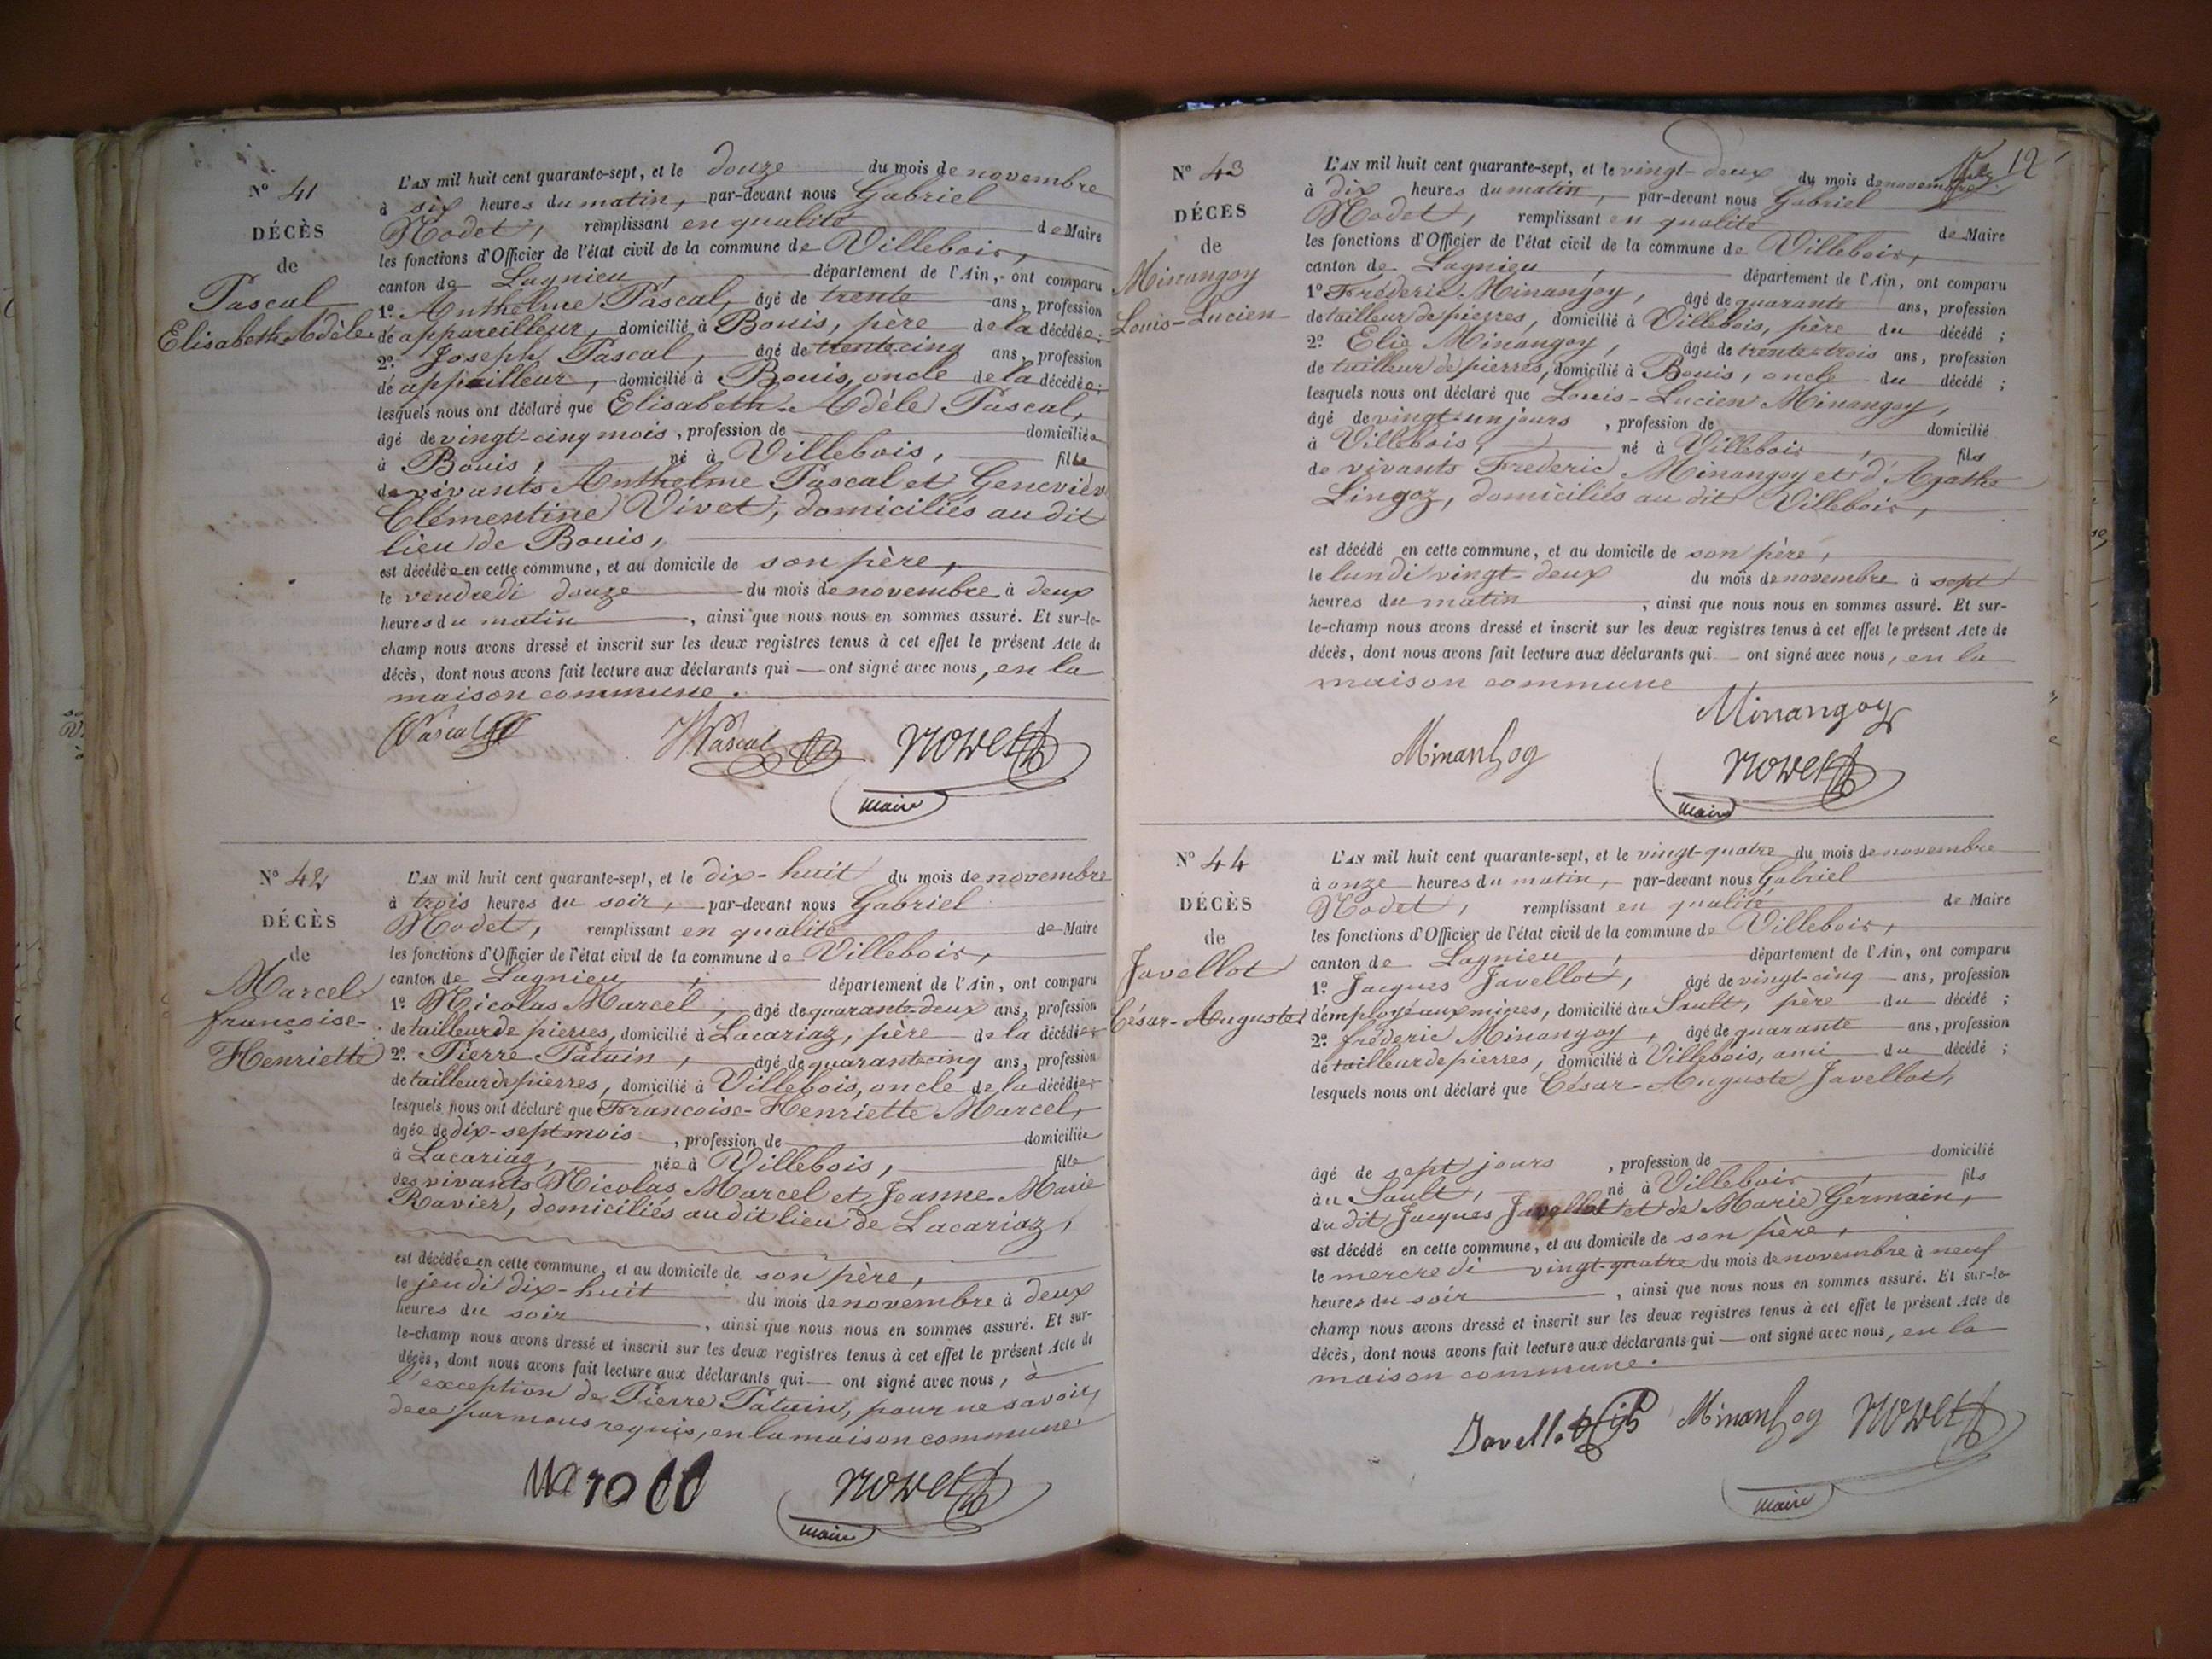 N° 41
DÉCÈS
de
Pascal
Elisabeth-Adèle
L'AN mil huit cent quarante-sept, et le douze du mois de novembre
à six heures du matin, par-devant nous Gabriel
Nodet, remplissant en qualité de Maire
les fonctions d'Officier de l'état civil de la commune de Villebois,
canton de Lagnieu, département de l'Ain, ont comparu
1° Anthelme Pascal, âgé de trente ans, profession
de appareilleur, domicilié à Bouis, père de la décédée;
2° Joseph Pascal, âgé de trente cinq ans, profession
de appailleur, domicilié à Bouis, oncle de la décédée;
lesquels nous ont déclaré que Elisabeth-Adèle Pascal,
âgé de vingt-cinq mois, profession de domiciliée
à Bouis, né à Villebois, fille
de vivants Anthelme Pascal et Geneviève
Clémentine Vivet, domiciliés au dit
lieu de Bouis,
est décédée en cette commune, et au domicile de son père,
le vendredi douze du mois de novembre à deux
heures du matin, ainsi que nous nous en sommes assuré. Et sur-le-
champ nous avons dressé et inscrit sur les deux registres tenus à cet effet le présent Acte de
décès, dont nous avons fait lecture aux déclarants qui ont signé avec nous, en la
maison commune.
Pascal Pascal Nodet
maire
N° 42
DÉCÈS
de
Marcel
françoise-
Henriette
L'AN mil huit cent quarante-sept, et le dix-huit du mois de novembre
à trois heures du soir, par-devant nous Gabriel
Nodet, remplissant en qualité de Maire
les fonctions d'Officier de l'état civil de la commune de Villebois,
canton de Lagnieu, département de l'Ain, ont comparu
1° Nicolas Marcel, âgé de quarante-deux ans, profession
de tailleur de pierres, domicilié à Lacariaz, père de la décédée,
2° Pierre Patuin, âgé de quarante cinq ans, profession
de tailleur de pierres, domicilié à Villebois, oncle de la décédée,
lesquels nous ont déclaré que Francoise-Henriette Marcel,
âgée de dix-sept mois, profession de domiciliée
à Lacariaz, née à Villebois, fille
des vivants Nicolas Marcel et Jeanne Marie
Ravier, domiciliés au dit lieu de Lacariaz,
est décédée en cette commune, et au domicile de son père,
le jeudi dix-huit du mois de novembre à deux
heures du soir, ainsi que nous nous en sommes assuré. Et sur-
le-champ nous avons dressé et inscrit sur les deux registres tenus à cet effet le présent Acte de
décès, dont nous avons fait lecture aux déclarants qui ont signé avec nous, à
l'exception de Pierre Patuin, pour ne savoir,
de ce par nous requis, en la maison commune.
Nodet
maire
12
N° 43
DÉCÈS
de
Minangoy
Louis-Lucien
L'AN mil huit cent quarante-sept, et le vingt-deux du mois de novembre
à dix heures du matin, par-devant nous Gabriel
Nodet, remplissant en qualité de Maire
les fonctions d'Officier de l'état civil de la commune de Villebois,
canton de Lagnieu, département de l'Ain, ont comparu
1° Frédéric Minangoy, âgé de quarante ans, profession
de tailleur de pierres, domicilié à Villebois, père du décédé;
2° Elie Minangoy, âgé de trente-trois ans, profession
de tailleur de pierres, domicilié à Bouis, oncle du décédé;
lesquels nous ont déclaré que Louis-Lucien Minangoy,
âgé de vingt-un jours, profession de domicilié
à Villebois, né à Villebois, fils
de vivants Frederic Minangoy et d'Agathe
Lingoz, domiciliés au dit Villebois,
est décédé en cette commune, et au domicile de son père,
le lundi vingt-deux du mois de novembre à sept
heures du matin, ainsi que nous nous en sommes assuré. Et sur-
le-champ nous avons dressé et inscrit sur les deux registres tenus à cet effet le présent Acte de
décès, dont nous avons fait lecture aux déclarants qui ont signé avec nous, en la
maison commune
Minangoy
Minanhog Nodet
maire
N° 44
DÉCÈS
de
Javellot
César-Auguste
L'AN mil huit cent quarante-sept, et le vingt-quatre du mois de novembre
à onze heures du matin, par-devant nous Gabriel
Nodet, remplissant en qualité de Maire
les fonctions d'Officier de l'état civil de la commune de Villebois,
canton de Lagnieu, département de l'Ain, ont comparu
1° Jacques Javellot, âgé de vingt-cinq ans, profession
d'employé aux mines, domicilié au Sault, père du décédé;
2° fréderic Minangoy, âgé de quarante ans, profession
de tailleur de pierres, domicilié à Villebois, ami du décédé;
lesquels nous ont déclaré que César-Auguste Javellot,
âgé de sept jours, profession de domicilié
au Sault, né à Villebois, fils
du dit Jacques Javellot et de Marie Germain,
est décédé en cette commune, et au domicile de son père,
le mercredi vingt-quatre du mois de novembre à neuf
heures du soir, ainsi que nous nous en sommes assuré. Et sur-le-
champ nous avons dressé et inscrit sur les deux registres tenus à cet effet le présent Acte de
décès, dont nous avons fait lecture aux déclarants qui ont signé avec nous, en la
maison commune.
Javellot Minanhog Nodet
maire